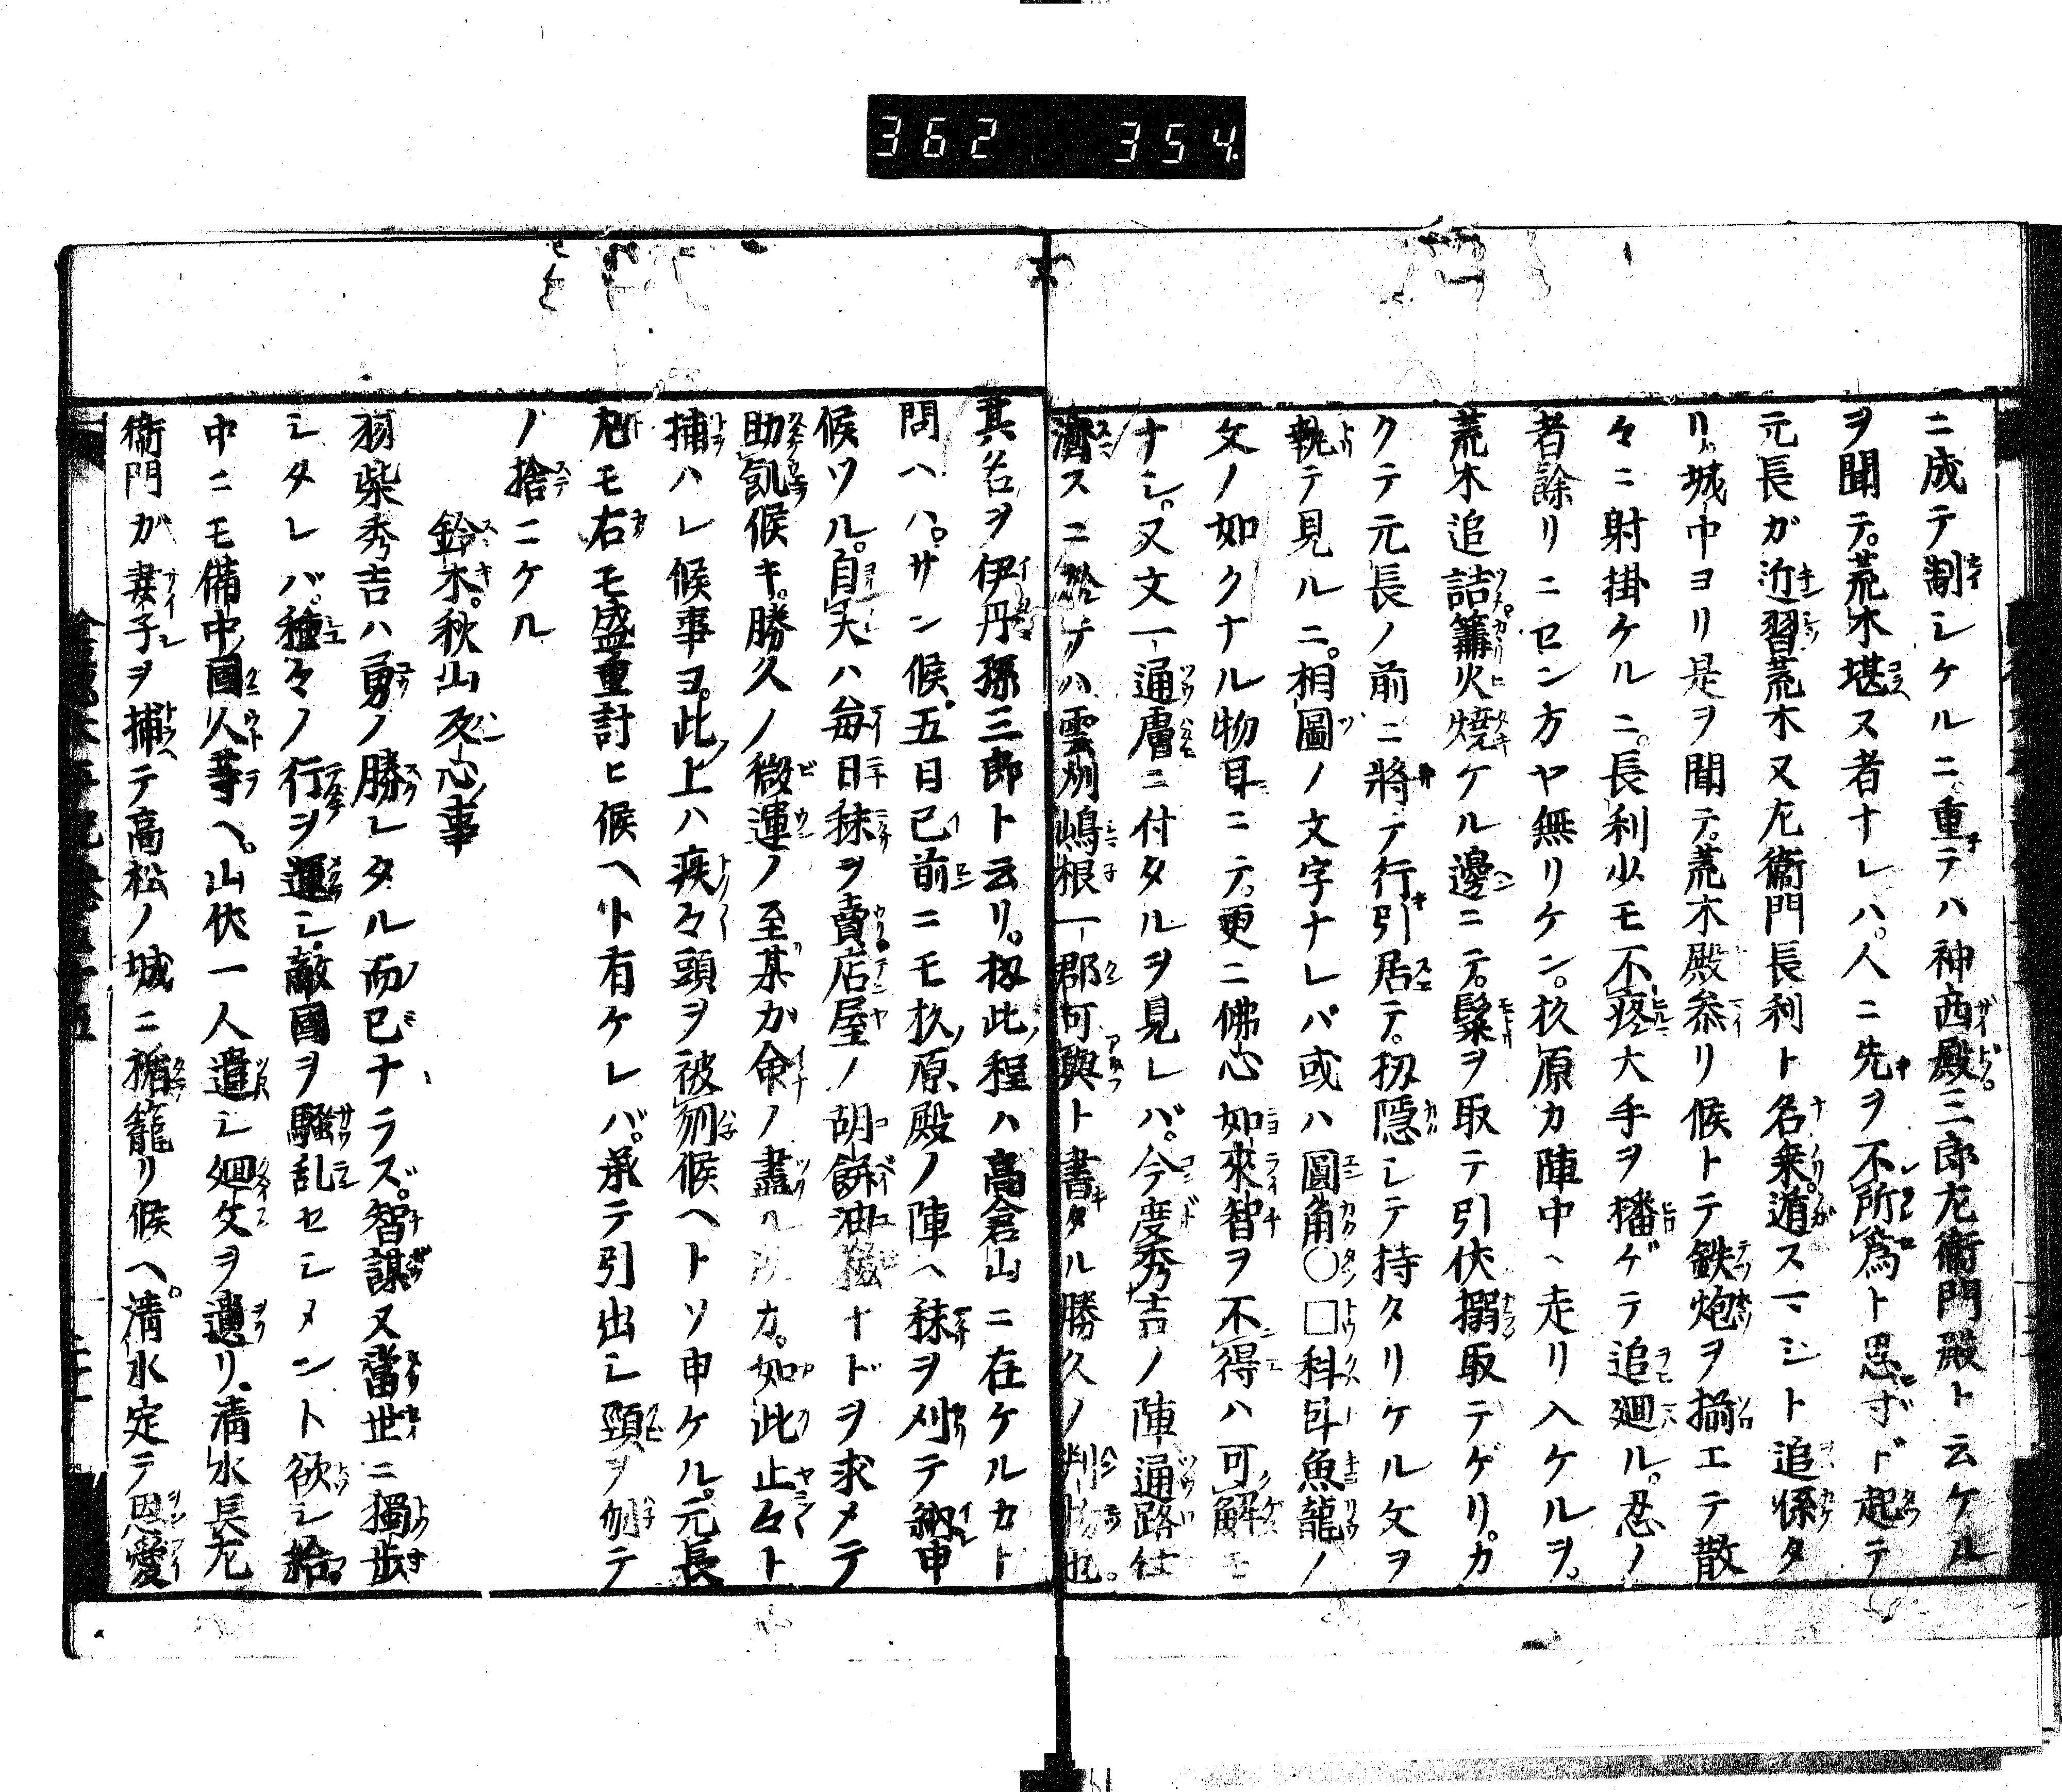 362 354
ニ成テ制シケルニ重テハ神西殿三郎左衞門殿ト云ケル
ヲ聞テ。荒木堪ヌ者ナレハ。人ニ先ヲ不所為ト思ヒガド起テ
元長ガ近習荒木又左衞門長利ト名乗遁スマジト追係タ
リ。城中ヨリ是ヲ聞テ。荒木殿参リ候トテ鉄炮ヲ揃エテ散
々ニ射掛ケルニ。長利少モ不疼大手ヲ播ゲテ追廻ル。忍ノ
者詮リニセン方ヤ無リケン。杦原カ陣中ヘ走リ入ケルヲ。
荒木追詰篝火焼ケル邊ニテ。鬟ヲ取テ引伏搦取テゲリ。カ
クテ元長ノ前ニ將テ行引居テ。扨隠シテ持タリケル文ヲ
執テ見ルニ。相圖ノ文字ナレバ或ハ圓角〇□科斗魚龍ノ
文ノ如クナル物耳ニテ。更ニ佛心如來智ヲ不得ハ可解モ
ナシ。又文一通膚ニ付タルヲ見レバ。今度秀吉ノ陣通路仕
濟スニ於テハ雲州嶋根一郡可與ト書タル勝久ノ判物也。
其名ヲ伊丹孫三郎ト云リ。扨此程ハ高倉山ニ在ケルカト
問ヘハ。サン候。五日已前ニモ杦原殿ノ陣ヘ秣ヲ刈テ納申
候ツル。自夫ハ毎日秣ヲ賣店屋ノ胡餅油ナドヲ求メテ
助飢候キ。勝久ノ微運ノ至某カ命ノ盡ル カ。如此止々ト
捕ハレ候事ヨ。此上ハ疾々頭ヲ被刎候ヘトソ申ケル。元長
兎モ右モ盛重討ヒ候ヘト有ケレバ。承テ引出シ頸ヲ刎テ
ノ捨ニケル
鈴木。秋山反心事
羽柴秀吉ハ勇ノ勝レタル而已ナラズ。智謀又當世ニ獨歩
シタレバ。種々ノ行ヲ運シ。敵國ヲ騒乱セシメント欲シ給
中ニモ備中國人等ヘ。山伏一人遣シ廻文ヲ遺リ。清水長左
衞門ガ妻子ヲ捕テ高松ノ城ニ楯籠リ候ヘ。清水定テ恩愛